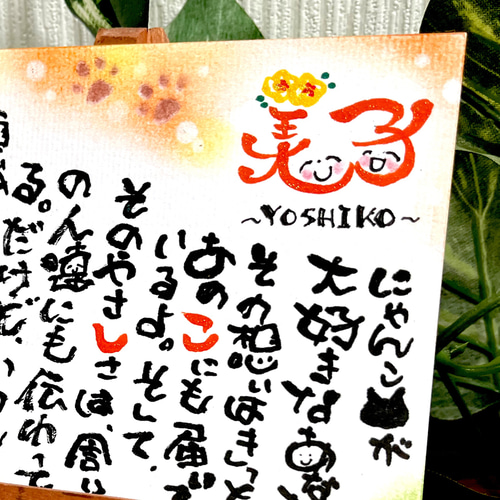 美子
~YOSHIKO~
にゃんこが
大好きなあな
その想いはきっと
あのこにも届いて
いるよ。そして、
そのやさしさは、周り
の人達にも伝わって
る。だけど、